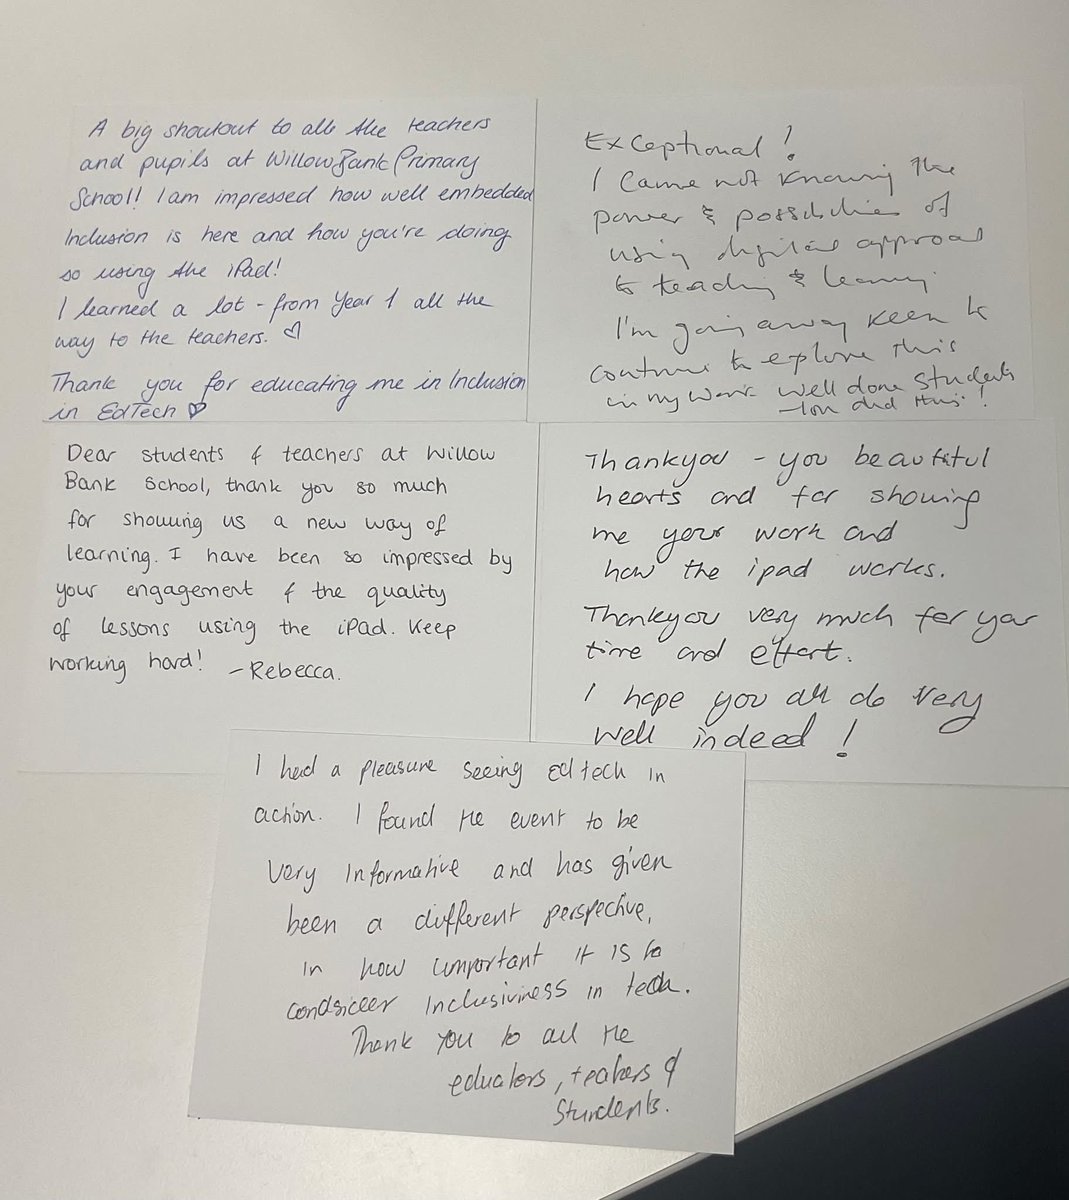 A big shoutout to all the teachers
and pupils at WillowBank Primary
School! I am impressed how well embedded
Inclusion is here and how you're doing
so using the iPad!
I learned a lot - from Year 1 all the
way to the teachers. ♡
Thank you for educating me in Inclusion
in EdTech ♡
Exceptional!
I came not knowing the
power & possibilities of
using digital approach
to teaching & learning.
I'm going away keen to
continue to explore this
in my work well done students
- you did this!
Dear students & teachers at Willow
Bank School, thank you so much
for showing us a new way of
learning. I have been so impressed by
your engagement & the quality
of lessons using the iPad. Keep
working hard! - Rebecca.
Thankyou - you beautiful
hearts and for showing
me your work and
how the ipad works.
Thankyou very much for your
time and effort.
I hope you all do very
well indeed!
I had a pleasure seeing Edtech in
action. I found the event to be
very informative and has given
been a different perspective,
in how important it is to
condsiceer inclusiviness in tech.
Thank you to all the
educators, teahers &
Sturdents.